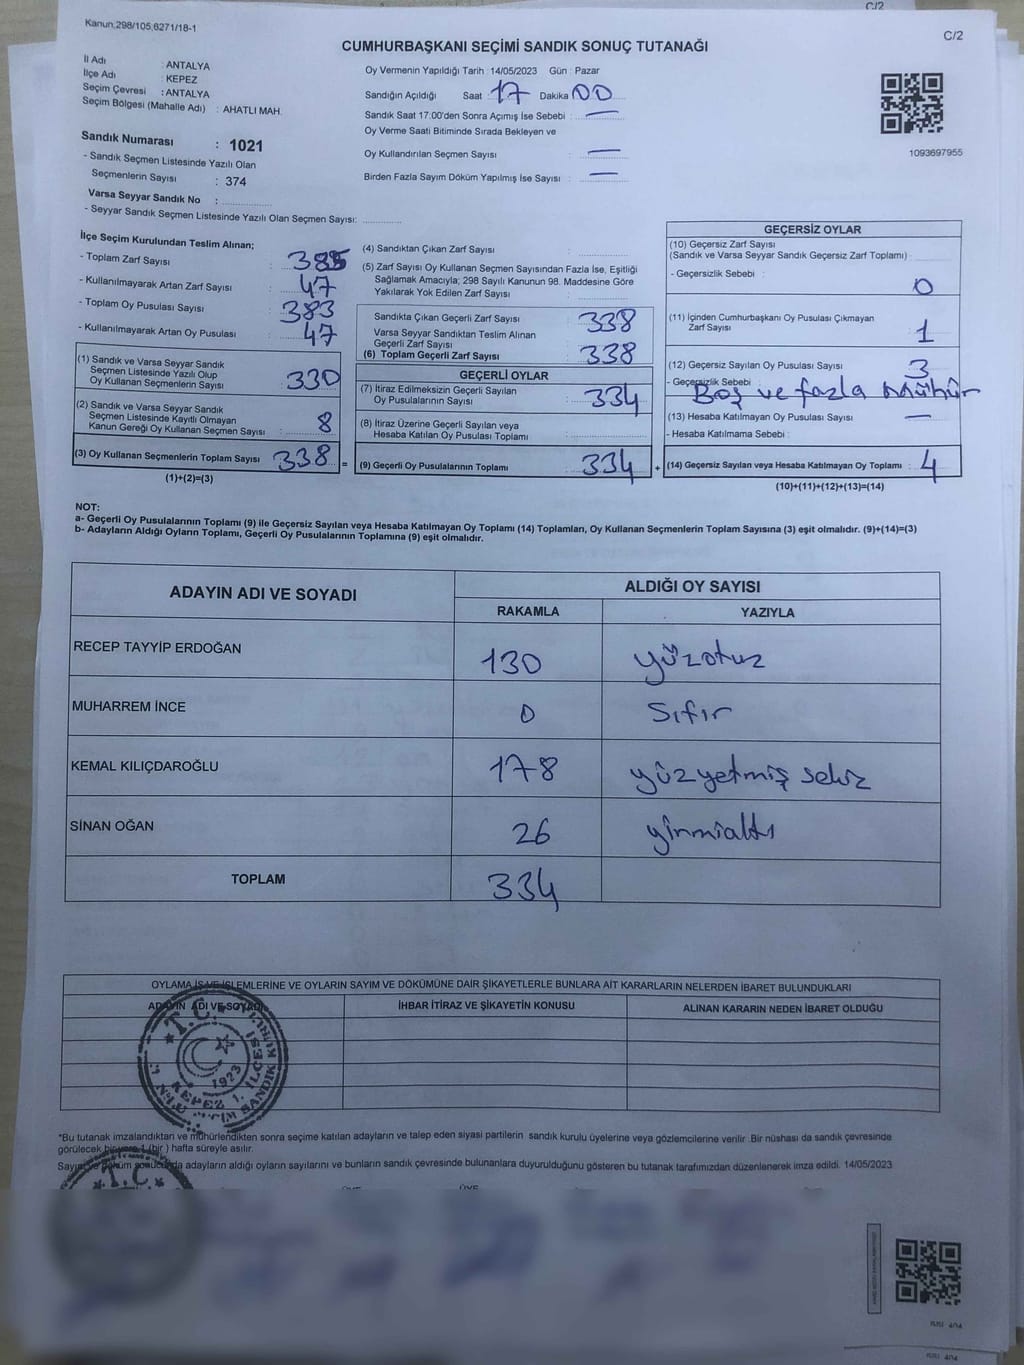 C/2
Kanun:298/105;6271/18-1
C/2
CUMHURBAŞKANI SEÇİMİ SANDIK SONUÇ TUTANAĞI
İl Adı : ANTALYA
İlçe Adı : KEPEZ
Seçim Çevresi : ANTALYA
Seçim Bölgesi (Mahalle Adı) : AHATLI MAH.
Oy Vermenin Yapıldığı Tarih : 14/05/2023 Gün : Pazar
Sandığın Açıldığı Saat : 17 Dakika 00
Sandık Saat 17:00'den Sonra Açımış İse Sebebi : —
Oy Verme Saati Bitiminde Sırada Bekleyen ve
Oy Kullandırılan Seçmen Sayısı : —
Birden Fazla Sayım Döküm Yapılmış İse Sayısı : —
1093697955
Sandık Numarası : 1021
- Sandık Seçmen Listesinde Yazılı Olan
Seçmenlerin Sayısı : 374
Varsa Seyyar Sandık No :
- Seyyar Sandık Seçmen Listesinde Yazılı Olan Seçmen Sayısı:
İlçe Seçim Kurulundan Teslim Alınan;
- Toplam Zarf Sayısı : 385
- Kullanılmayarak Artan Zarf Sayısı : 47
- Toplam Oy Pusulası Sayısı : 383
- Kullanılmayarak Artan Oy Pusulası : 47
(1) Sandık ve Varsa Seyyar Sandık
Seçmen Listesinde Yazılı Olup
Oy Kullanan Seçmenlerin Sayısı : 330
(2) Sandık ve Varsa Seyyar Sandık
Seçmen Listesinde Kayıtlı Olmayan
Kanun Gereği Oy Kullanan Seçmen Sayısı : 8
(3) Oy Kullanan Seçmenlerin Toplam Sayısı : 338 =
(1)+(2)=(3)
(4) Sandıktan Çıkan Zarf Sayısı :
(5) Zarf Sayısı Oy Kullanan Seçmen Sayısından Fazla İse, Eşitliği
Sağlamak Amacıyla; 298 Sayılı Kanunun 98. Maddesine Göre
Yakılarak Yok Edilen Zarf Sayısı :
Sandıkta Çıkan Geçerli Zarf Sayısı : 338
Varsa Seyyar Sandıktan Teslim Alınan
Geçerli Zarf Sayısı :
(6) Toplam Geçerli Zarf Sayısı : 338
GEÇERLİ OYLAR
(7) İtiraz Edilmeksizin Geçerli Sayılan
Oy Pusulalarının Sayısı : 334
(8) İtiraz Üzerine Geçerli Sayılan veya
Hesaba Katılan Oy Pusulası Toplamı :
(9) Geçerli Oy Pusulalarının Toplamı : 334 +
GEÇERSİZ OYLAR
(10) Geçersiz Zarf Sayısı
(Sandık ve Varsa Seyyar Sandık Geçersiz Zarf Toplamı) :
- Geçersizlik Sebebi : 0
(11) İçinden Cumhurbaşkanı Oy Pusulası Çıkmayan
Zarf Sayısı : 1
(12) Geçersiz Sayılan Oy Pusulası Sayısı : 3
- Geçersizlik Sebebi : Boş ve fazla mühür
(13) Hesaba Katılmayan Oy Pusulası Sayısı : —
- Hesaba Katılmama Sebebi :
(14) Geçersiz Sayılan veya Hesaba Katılmayan Oy Toplamı : 4
(10)+(11)+(12)+(13)=(14)
NOT:
a- Geçerli Oy Pusulalarının Toplamı (9) ile Geçersiz Sayılan veya Hesaba Katılmayan Oy Toplamı (14) Toplamları, Oy Kullanan Seçmenlerin Toplam Sayısına (3) eşit olmalıdır. (9)+(14)=(3)
b- Adayların Aldığı Oyların Toplamı, Geçerli Oy Pusulalarının Toplamına (9) eşit olmalıdır.
ADAYIN ADI VE SOYADI
ALDIĞI OY SAYISI
RAKAMLA YAZIYLA
RECEP TAYYİP ERDOĞAN 130 yüzotuz
MUHARREM İNCE 0 Sıfır
KEMAL KILIÇDAROĞLU 178 yüzyetmiş sekiz
SİNAN OĞAN 26 yirmialtı
TOPLAM 334
OYLAMA İŞ VE İŞLEMLERİNE VE OYLARIN SAYIM VE DÖKÜMÜNE DAİR ŞİKAYETLERLE BUNLARA AİT KARARLARIN NELERDEN İBARET BULUNDUKLARI
ADAYIN ADI VE SOYADI İHBAR İTİRAZ VE ŞİKAYETİN KONUSU ALINAN KARARIN NEDEN İBARET OLDUĞU
T.C.
1923
KEPEZ 1. İLÇESİ
SANDIK KURULU
*Bu tutanak imzalandıktan ve mühürlendikten sonra seçime katılan adayların ve talep eden siyasi partilerin sandık kurulu üyelerine veya gözlemcilerine verilir. Bir nüshası da sandık çevresinde
görülecek bir yere 1 (bir) hafta süreyle asılır.
Sayım ve döküm sonucunda adayların aldığı oyların sayılarını ve bunların sandık çevresinde bulunanlara duyurulduğunu gösteren bu tutanak tarafımızdan düzenlenerek imza edildi. 14/05/2023
T.C.